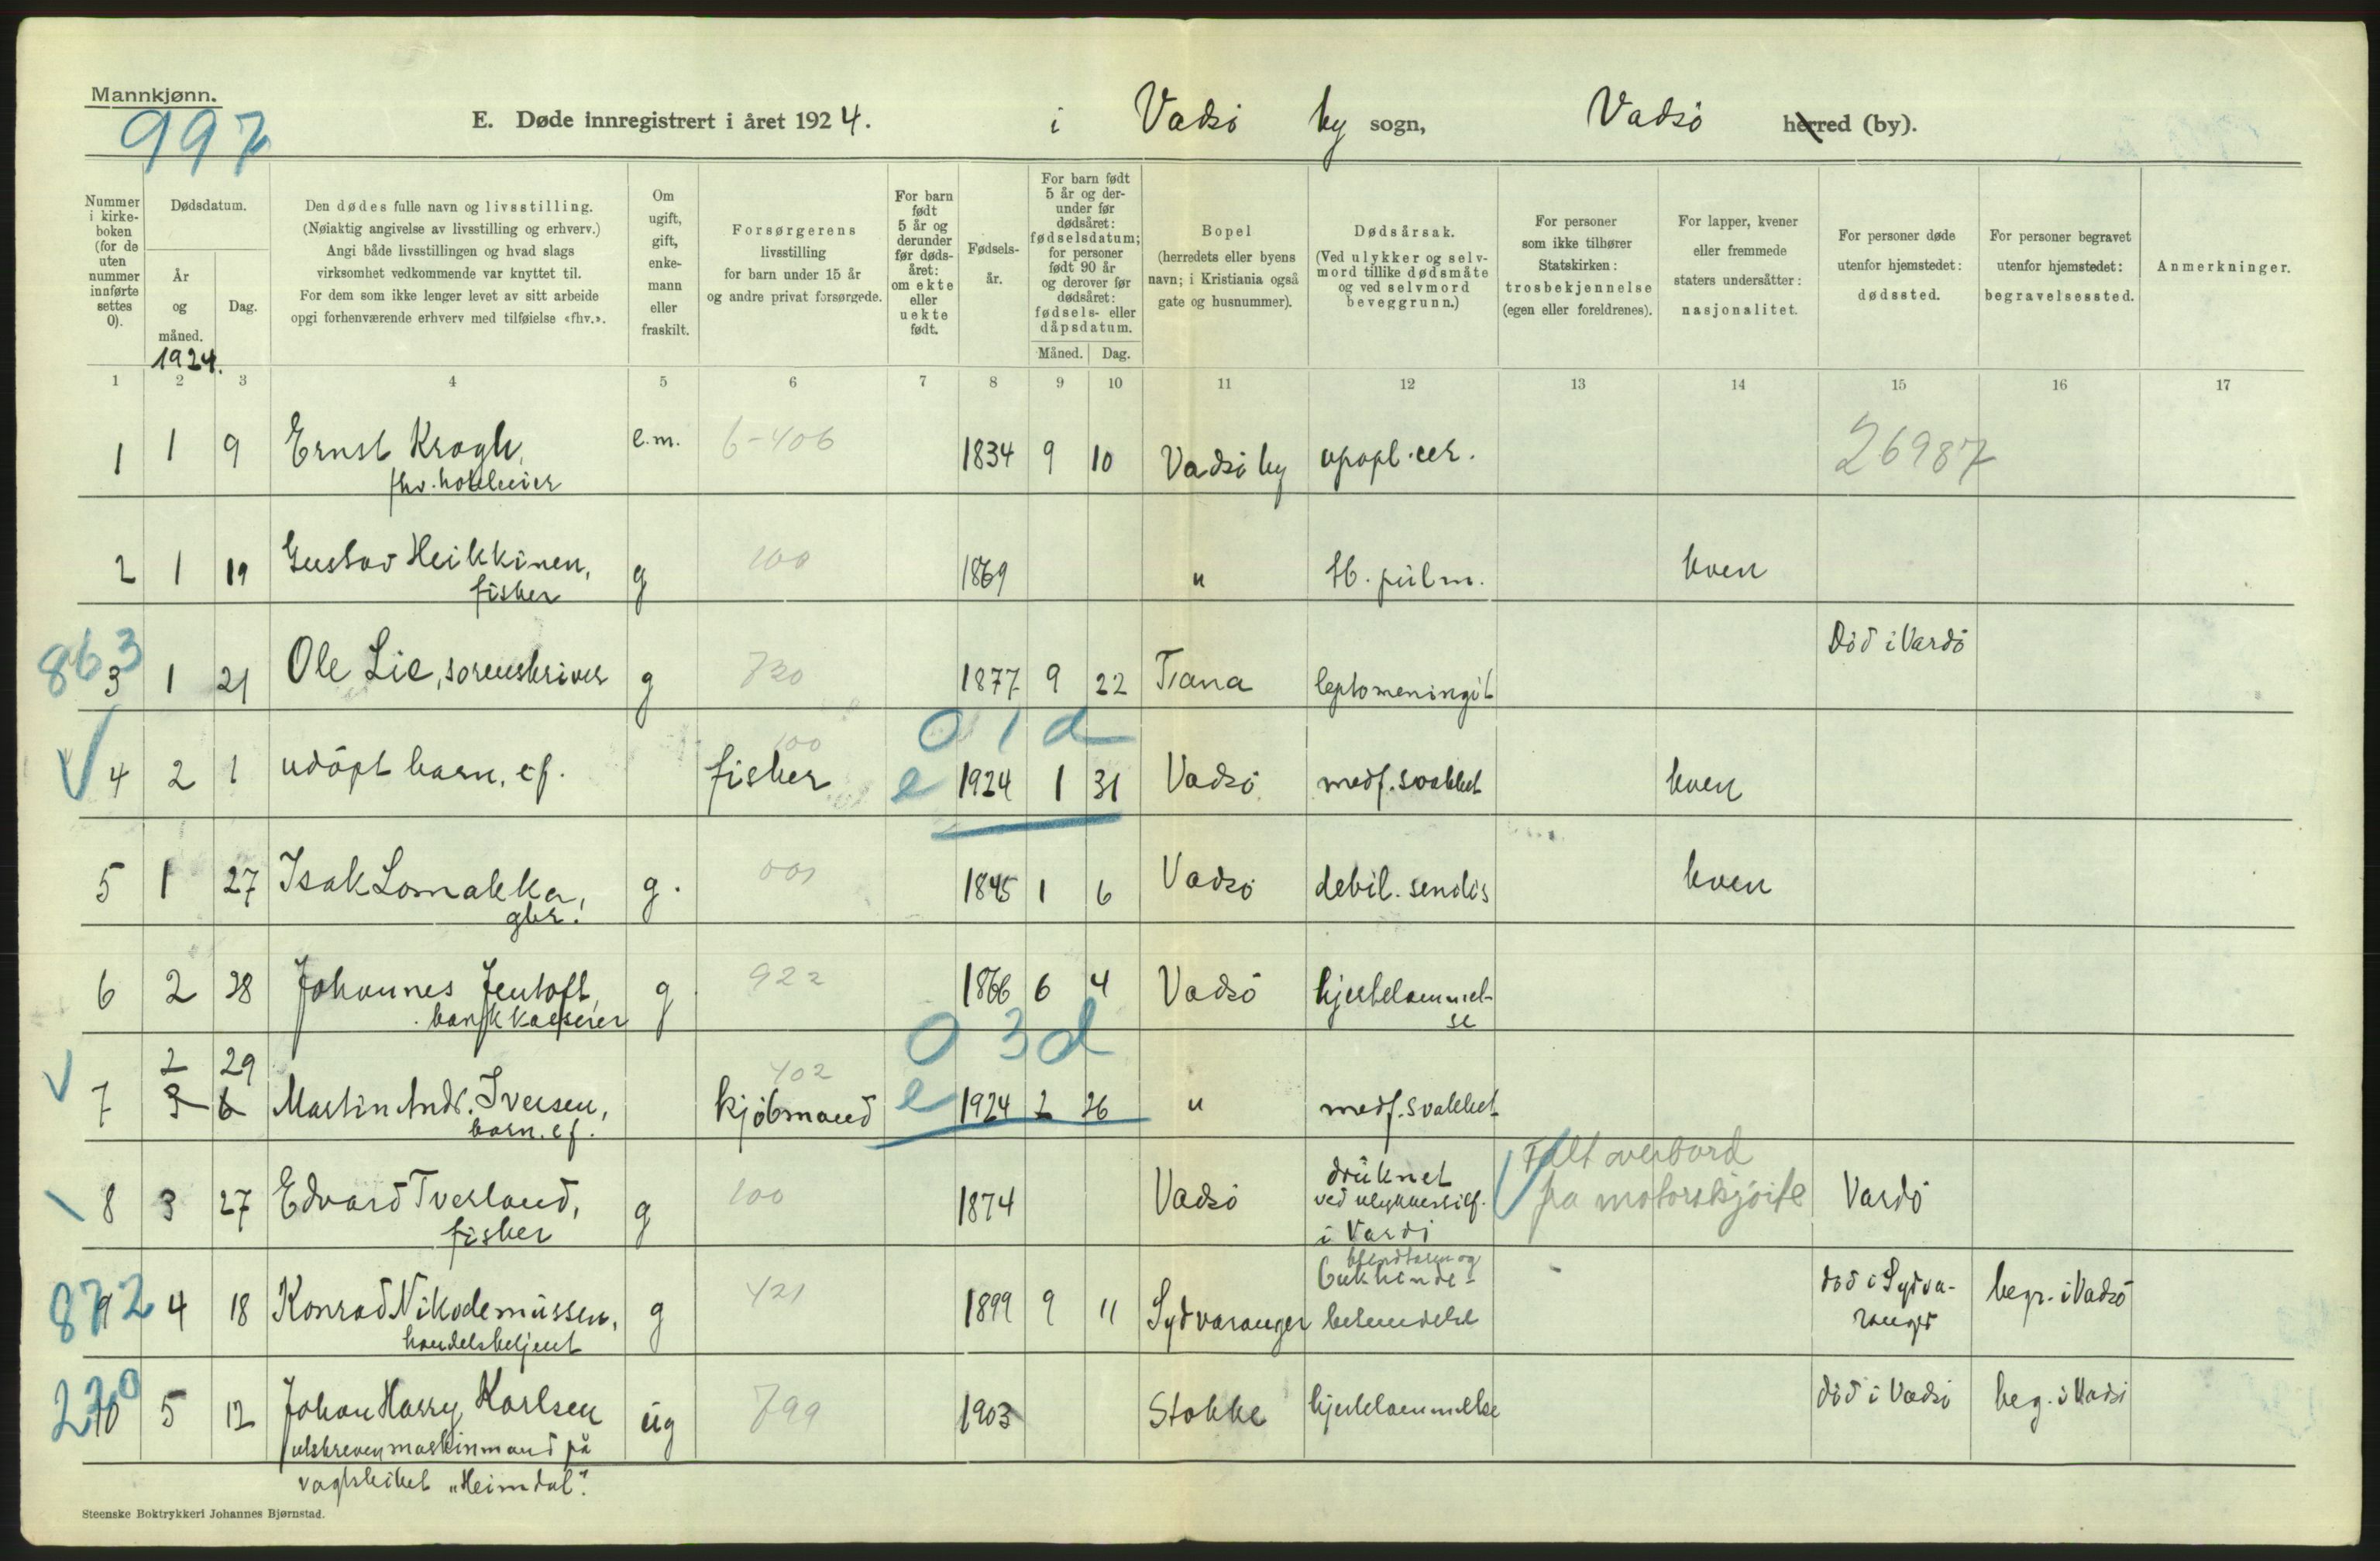 Mannkjønn.
997
E. Døde innregistrert i året 1924. i Vadsö by sogn, Vadsö herred (by).
Nummer i kirkeboken (for de uten nummer innførte settes 0).
Dødsdatum.
År og måned.
1924.
Dag.
Den dødes fulle navn og livsstilling.
(Nøiaktig angivelse av livsstilling og erhverv.)
Angi både livsstillingen og hvad slags
virksomhet vedkommende var knyttet til.
For dem som ikke lenger levet av sitt arbeide
opgi forhenværende erhverv med tilføielse «fhv.».
Om ugift, gift, enkemann eller fraskilt.
Forsørgerens
livsstilling
for barn under 15 år
og andre privat forsørgede.
For barn født 5 år og derunder før dødsåret: om ekte eller uekte født.
Fødselsår.
For barn født 5 år og derunder før dødsåret: fødselsdatum; for personer født 90 år og derover før dødsåret: fødsels- eller dåpsdatum.
Måned. Dag.
Bopel
(herredets eller byens
navn; i Kristiania også
gate og husnummer).
Dødsårsak.
(Ved ulykker og selvmord tillike dødsmåte
og ved selvmord
beveggrunn.)
For personer
som ikke tilhører
Statskirken:
trosbekjennelse
(egen eller foreldrenes).
For lapper, kvener
eller fremmede
staters undersåtter:
nasjonalitet.
For personer døde
utenfor hjemstedet:
dødssted.
For personer begravet
utenfor hjemstedet:
begravelsessted.
Anmerkninger.
1 2 3 4 5 6 7 8 9 10 11 12 13 14 15 16 17
1 1 9 Ernst Krogh, e.m. 6-406 1834 9 10 Vadsö by apopl. cer. 26987
fhv. hoteleier
2 1 19 Gustav Heikkinen, g 100 1869 " tb. pulm. kven
fisker
863
3 1 21 Ole Lie, sorenskriver g 720 1877 9 22 Tana leptomeningit Död i Vardö
0 1 d
4 2 1 udöpt barn, ef. fisker 100 e 1924 1 31 Vadsö medf. svakhet kven
5 1 27 Isak Lomakka, g. 001 1845 1 6 Vadsö debil. senilis kven
gbr.
6 2 28 Johannes Jentoft, g 922 1866 6 4 Vadsö hjertelammel-
bankkasserer se
0 3 d
2 29
7 3 6 Martin Andr. Iversen, kjöbmand 402 e 1924 2 26 " medf. svakhet
barn. ef.
8 3 27 Edvard Tverland, g 100 1874 Vadsö druknet Falt overbord Vardö
fisker ved ulykkestilf. fra motorskjöite
i Vardö
872
9 4 18 Konrad Nikodemussen, g 421 1899 9 11 Sydvaranger blindtarm og död i Sydva- begr. i Vadsö
handelsbetjent bukhinde- ranger
betendelse
270
10 5 12 Johan Harry Karlsen ug 799 1903 Stokke hjertelammelse död i Vadsö beg. i Vadsö
utskreven maskinmand på
vagtskibet "Heimdal".
Steenske Boktrykkeri Johannes Bjørnstad.